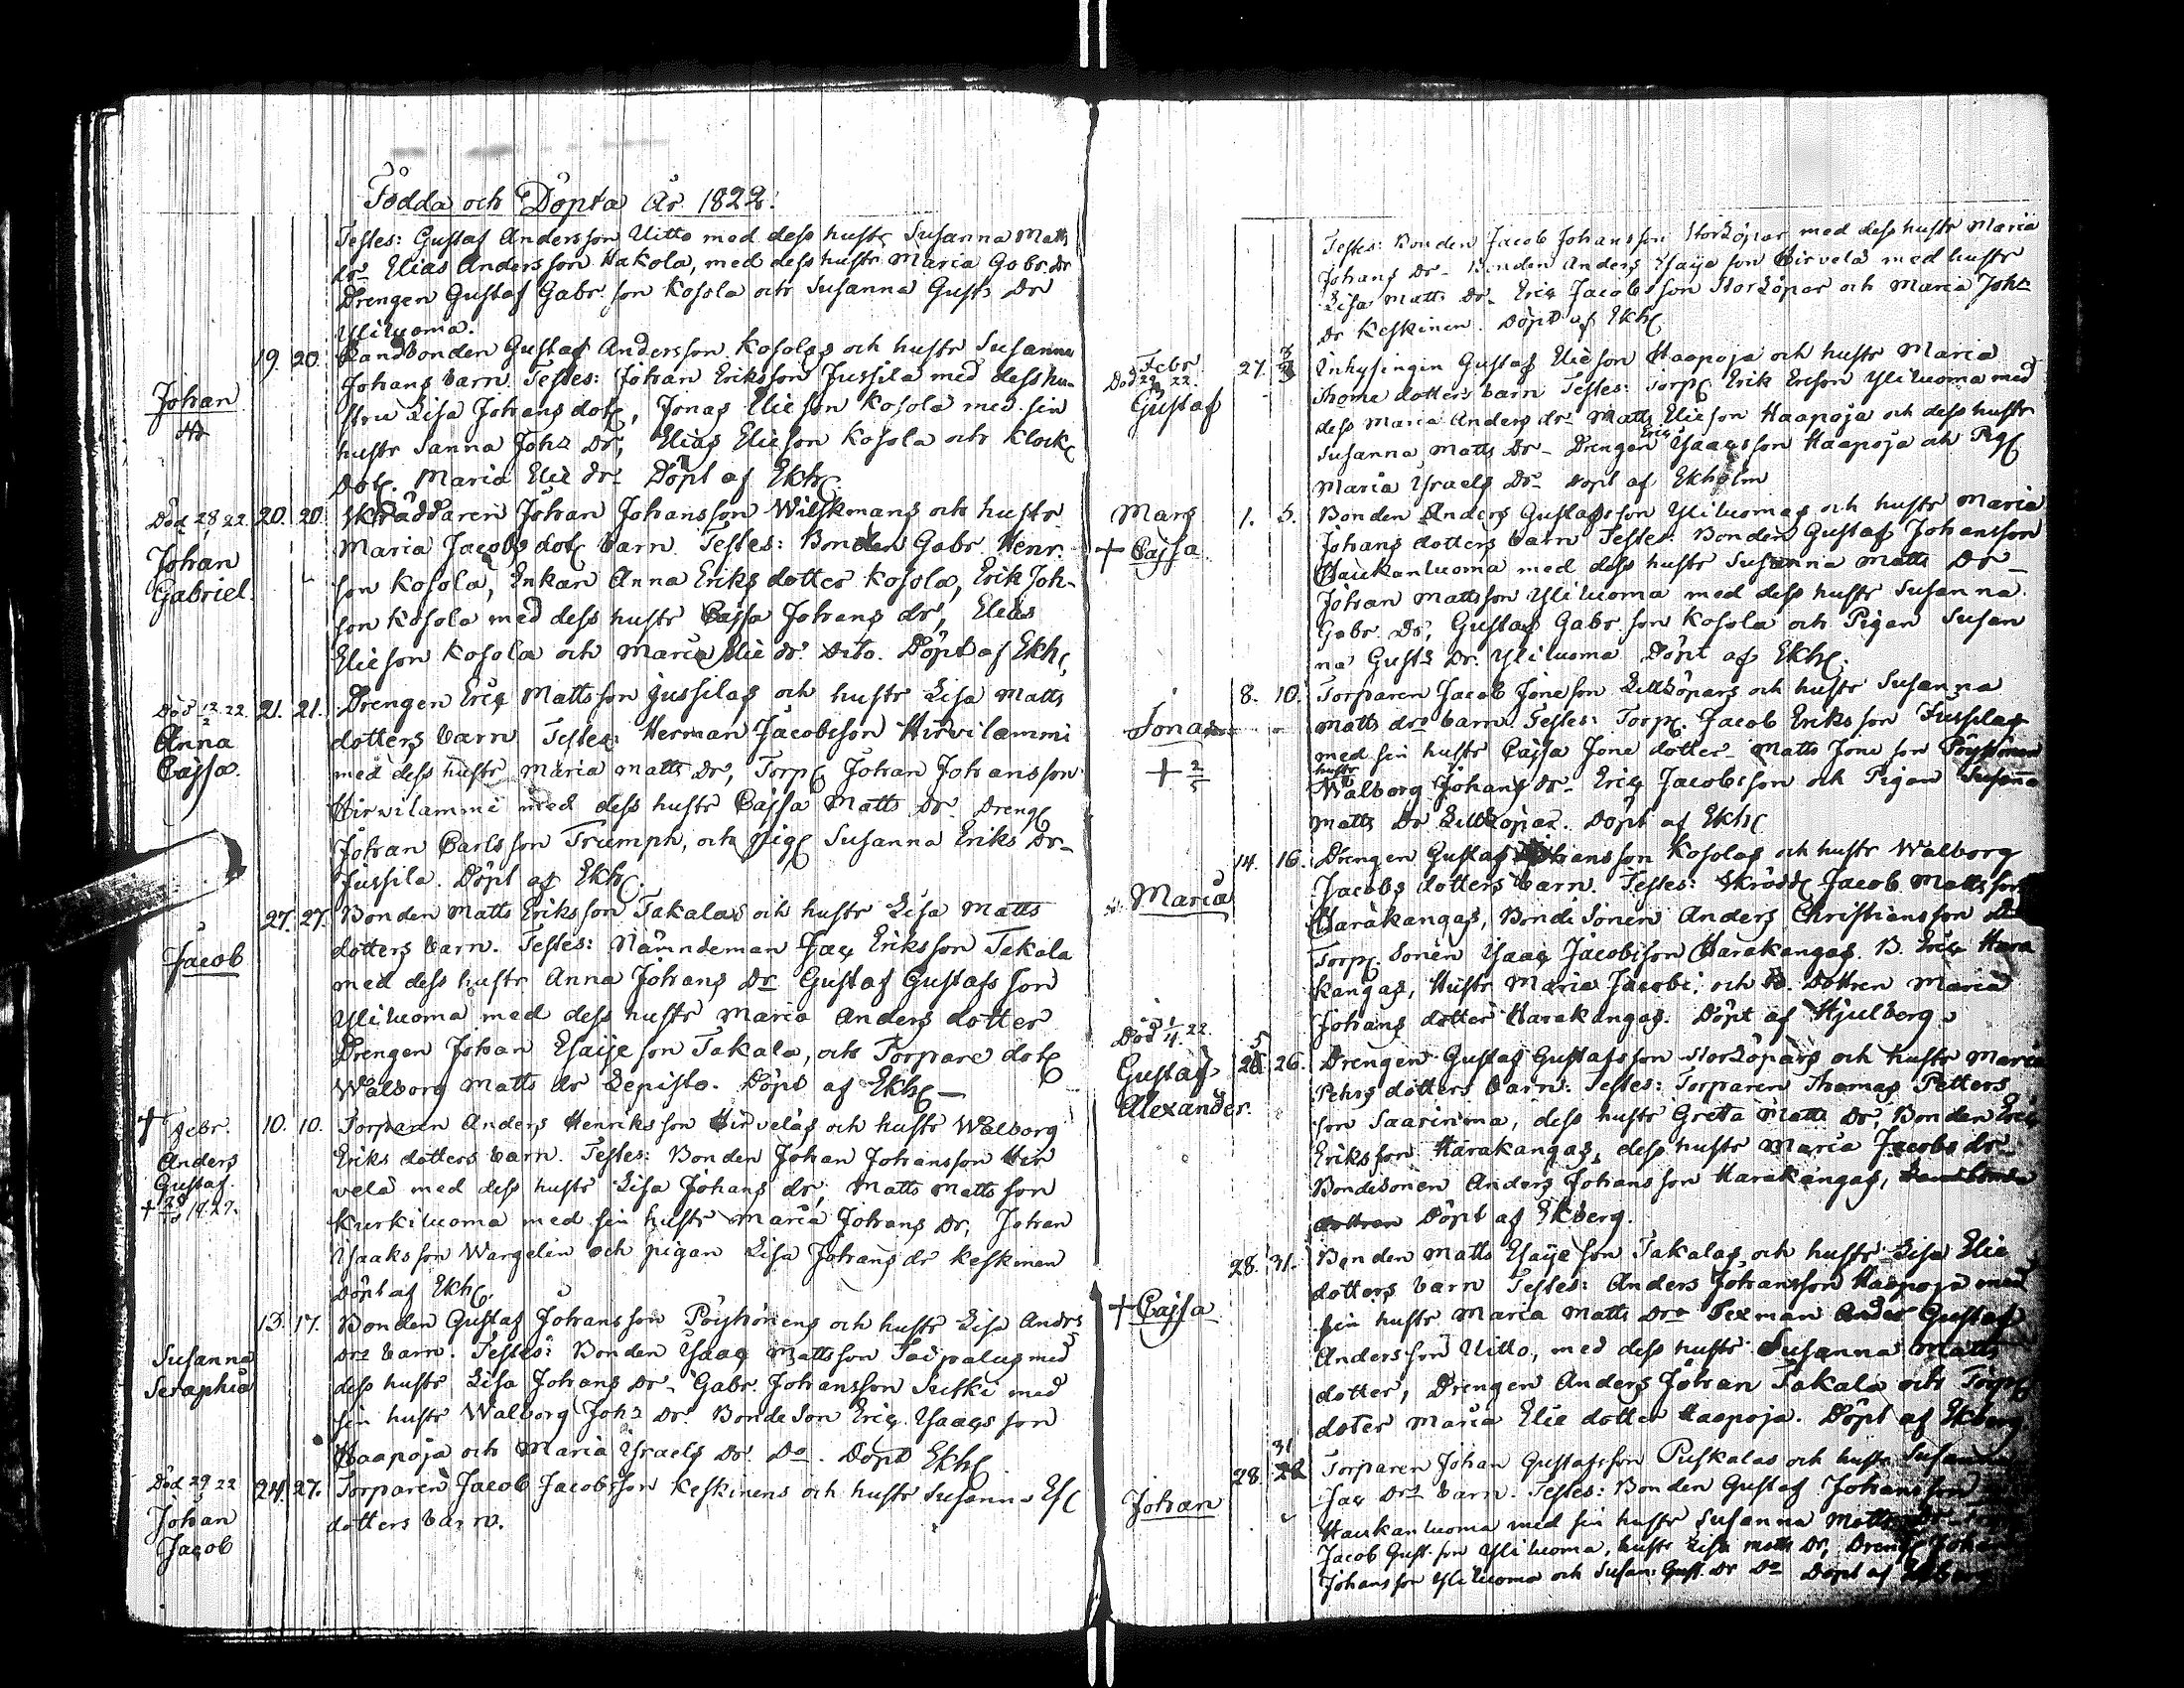 Födda och Döpta År 1822.
Testes: Gustaf Andersson Uitto med dess hustr Susanna Matts
dr Elias Andersson Hakola, med dess hustr Maria Gabr. dr
Drengen Gustaf Gabr. son Kosola och Susanna Gusts Dr
Ylihuoma.
19. 20. Landbonden Gustaf Andersson Kosolas och hustr Susanna
Johan
Johans barn. Testes: Johan Eriksson Jussila med dess hu-
stru Lisa Johans dot, Jonas Elieson Kosola med sin
hustr Sanna Joh: Dr, Elias Elieson Kosola och Klock
Dot. Maria Elie Dr Döpt af Ekh
Död 28/ 22. 20. 20. Skräddaren Johan Johansson Wilskmans och hustr
Johan
Gabriel.
Maria Jacobs dot barn. Testes: Bonden Gabr Henr.
son Kosola, Enkan Anna Eriks dotter Kosola, Erik Joh-
son Kosola med dess hustr Cajsa Johans dr, Elias
Elieson Kosola och Maria Elie dr. Dito. Döpt af Ekh
Död 12/2 22. 21. 21. Drengen Eriq Mattsson Jussilas och hustr Lisa Matts
Anna
Cajsa.
dotters barn. Testes: Herman Jacobsson Hirvilammi
med dess hustr Maria Matts Dr, Torp Johan Johansson
Hirvilammi med dess hustr Cajsa Matts Dr. Dreng
Johan Carlsson Trumph, och pig Susanna Eriks Dr
Jussila. Döpt af Ekh.
27. 27. Bonden Matts Eriksson Takalas och hustr Lisa Matts
Jacob
dotters barn. Testes: Nämndeman Isaq Eriksson Takala
med dess hustr Anna Johans Dr Gustaf Gustafsson
Ylihuoma med dess hustr Maria Anders dotter
Drengen Johan Esaije son Takala, och Torpare dot
Walborg Matts dr Lepisto. Döpt af Ekh
+ Febr. 10. 10. Torparen Anders Henriksson Hirvelas och hustr Walborg
Anders
Gustaf
Eriks dotters barn. Testes: Bonden Johan Johansson Hir
vela med dess hustr Lisa Johans dr, Matts Matts son
Kurkiluoma med sin hustr Maria Johans Dr, Johan
Ysaaksson Wargelin och pigan Lisa Johans dr Keskinen
Döpt af Ekh.
13. 17. Bonden Gustaf Johansson Pöyhönens och hustr Lisa Andrs
Susanna
Seraphia
Drs barn. Testes: Bonden Ysaaq Mattsson Taipalus med
dess hustr Lisa Johans Dr Gabr. Johansson Suski med
sin hustr Walborg Joh: Dr. Bonde Son Eriq Ysaaqs son
Haapoja och Maria Ysraels Dr. Do. Döpt Ekh
Död 29 22 24. 27. Torparen Jacob Jacobsson Keskinens och hustr Susanna Es
Johan
Jacob
dotters barn.
Testes: Bonden Jacob Johansson Storköpar med dess hustr Maria
Johans Dr Bonden Anders Esaije son Hirvela med hustr
Lisa Matts Dr Eriq Jacobsson Storköpar och Maria Johs
Dr Keskinen. Döpt af Ekh
Febr 27. 3 Inhysingen Gustaf Elieson Haapoja och hustr Maria
Död 22.
Gustaf
Thome dotters barn Testes: Torp Erik Ericson Ylihuoma med
dess Maria Anders dr Matts Elieson Haapoja och dess hustr
Susanna Matts Dr Drengen Eriq Ysaaqsson Haapoja och Pig
Maria Ysraels Dr Döpt af Ekholm
Mars 1. 3. Bonden Anders Gustafsson Ylihuomas och hustr Maria
+ Cajsa
Johans dotters barn Testes: Bonden Gustaf Johansson
Haukanhuoma med dess hustr Susanna Matts Dr
Johan Mattsson Ylihuoma med dess hustr Susanna
Gabr. Dr, Gustaf Gabr. son Kosola och Pigan Susan
na Gusts Dr. Ylihuoma Döpt af Ekh.
8. 10. Torparen Jacob Joneson Lillköpars och hustr Susanna
Jonas
Matts drs barn. Testes: Torp. Jacob Eriksson Jussilas
med sin hustr Cajsa Jone dotter Matts Jone son Pöyhönen
+ 2/5
hustr
Walborg Johans dr Eriq Jacobsson och Pigan Susanna
Matts Dr Lillköpar. Döpt af Ekh
14. 16. Drengen Gustaf Johansson Kosolas och hustr Walborg
Maria
Jacobs dotters barn. Testes: Skrädd Jacob Mattsson
Harakangas, Bonde Sonen Anders Christiansson
Torp. Sonen Ysaaq Jacobsson Harakangas. B. Eriq Hara
kangas, Hustr Maria Jacobi, och B. Dottren Maria
Johans dotter Harakangas. Döpt af Hjulberg.
Död 1/4 22. 25 26. Drengen Gustaf Gustafsson Storköpars och hustr Maria
Gustaf
Alexander.
Pehrs dotters barn. Testes: Torparen Thomas Petters
son Saarinma, dess hustr Gretta Matts Dr, Bonden Eriq
Eriksson Harakangas, dess hustr Maria Jacobs dr
Bondesonen Anders Johansson Harakangas,
dottren Döpt af Ekberg.
28. 31. Bonden Matts Esaije son Takalas och hustr Lisa Elie
+ Cajsa
dotters barn Testes: Anders Johansson Haapoja med
sin hustr Maria Matts Dr Sexman Gustaf
Andersson Uitto, med dess hustr Susanna Matts
dotter, Drengen Anders Johan Takala och Torp
doter Maria Elie dotter Haapoja. Döpt af Ekberg.
28. 31 Torparen Johan Gustafsson Puskalas och hustr Susanna
Johan
Isaq Drs barn. Testes: Bonden Gustaf Johansson
Haukanhuoma med sin hustr Susanna Matts Dr
Jacob Gust. son Ylihuoma, hustr Lisa Matts Dr, Dreng Johan
Johansson Ylihuoma och Susan: Gust. Dr Do Döpt af Ekberg